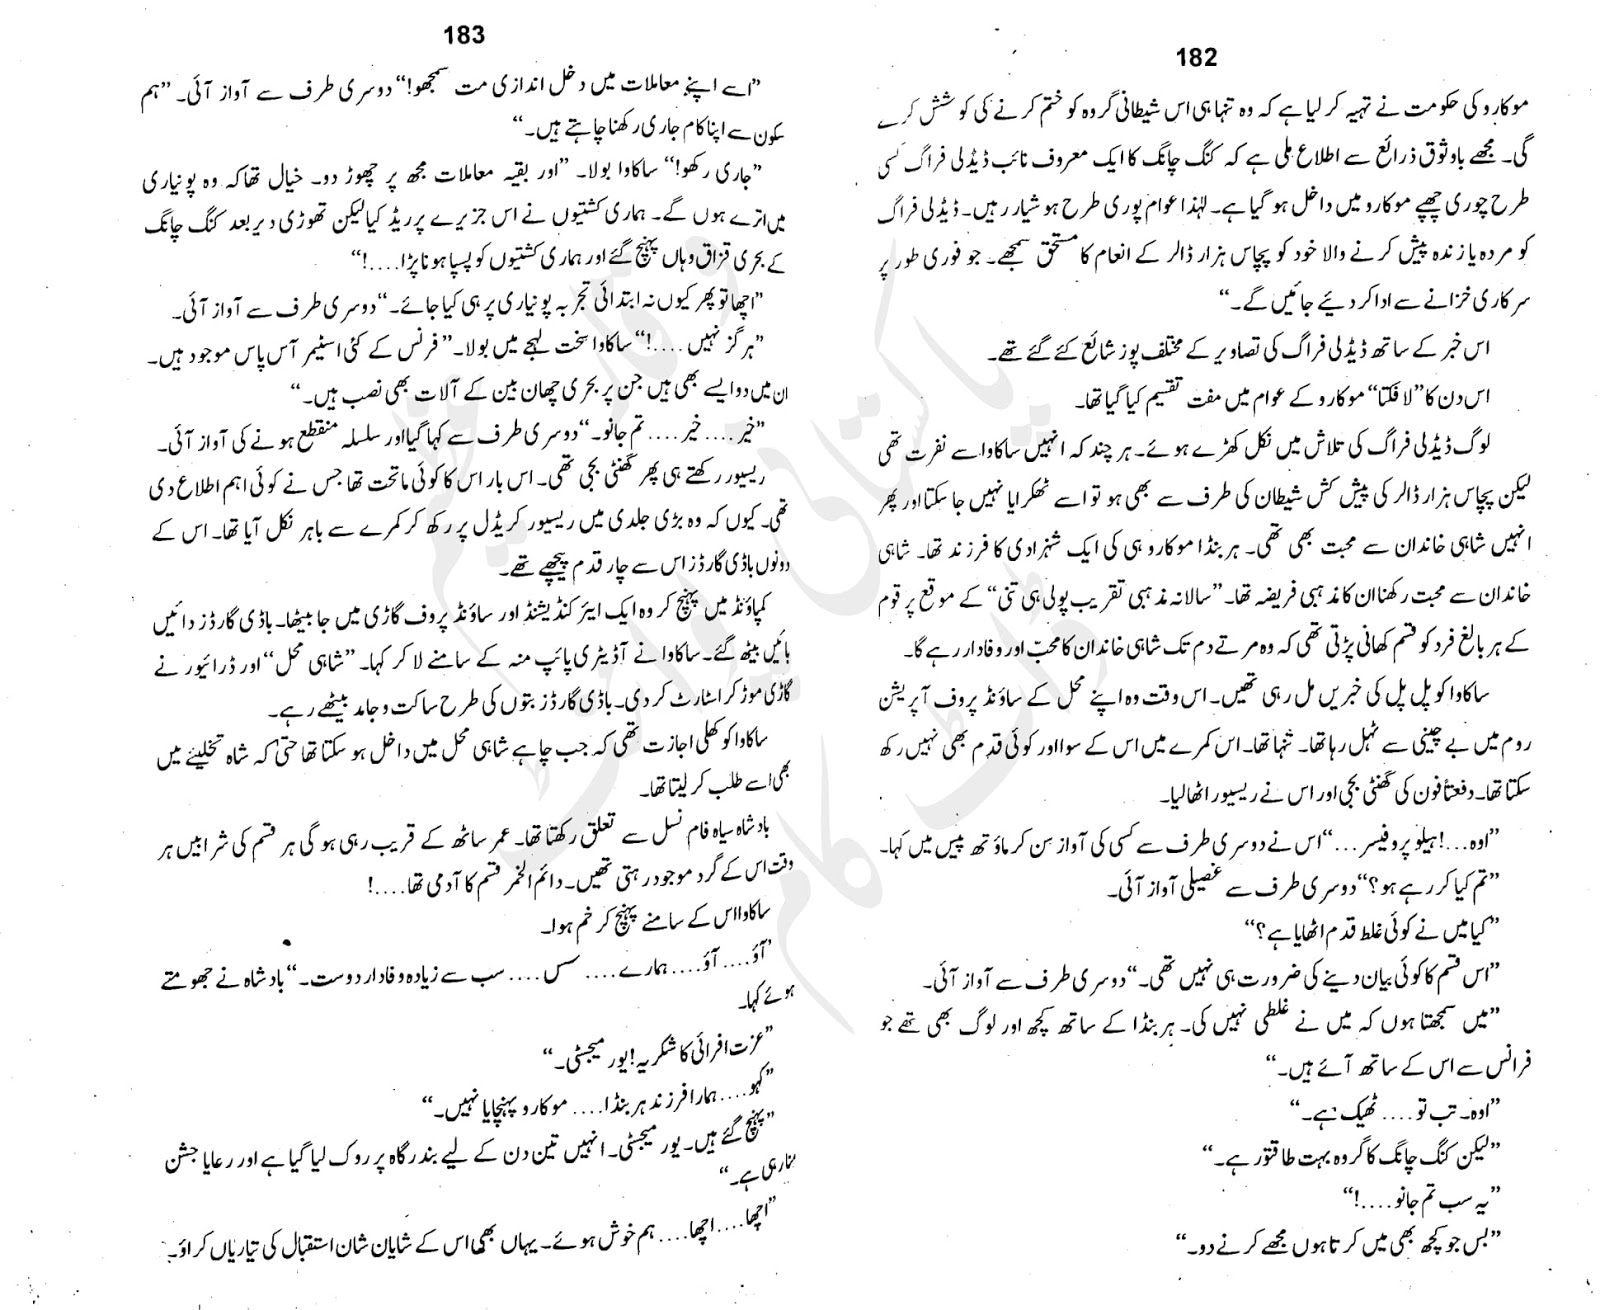 182
موکارو کی حکومت نے تہیہ کر لیا ہے کہ وہ تنہا ہی اس شیطانی گروہ کو ختم کرنے کی کوشش کرے
گی۔ مجھے باوثوق ذرائع سے اطلاع ملی ہے کہ کنگ چانگ کا ایک معروف نائب ڈیڈلی فراگ کسی
طرح چوری چھپے موکارو میں داخل ہو گیا ہے۔ لہٰذا عوام پوری طرح ہوشیار رہیں۔ ڈیڈلی فراگ
کو مردہ یا زندہ پیش کرنے والا خود کو پچاس ہزار ڈالر کے انعام کا مستحق سمجھے۔ جو فوری طور پر
سرکاری خزانے سے ادا کر دیئے جائیں گے۔“
اس خبر کے ساتھ ڈیڈلی فراگ کی تصاویر کے مختلف پوز شائع کئے گئے تھے۔
اس دن کا ”لافکتا“ موکارو کے عوام میں مفت تقسیم کیا گیا تھا۔
لوگ ڈیڈلی فراگ کی تلاش میں نکل کھڑے ہوئے۔ ہر چند کہ انہیں ساکاوا سے نفرت تھی
لیکن پچاس ہزار ڈالر کی پیش کش شیطان کی طرف سے بھی ہو تو اسے ٹھکرایا نہیں جا سکتا اور پھر
انہیں شاہی خاندان سے محبت بھی تھی۔ ہربنڈا موکارو ہی کی ایک شہزادی کا فرزند تھا۔ شاہی
خاندان سے محبت رکھنا ان کا مذہبی فریضہ تھا۔ ”سالانہ مذہبی تقریب پولی ہی تنی“ کے موقع پر قوم
کے ہر بالغ فرد کو قسم کھانی پڑتی تھی کہ وہ مرتے دم تک شاہی خاندان کا محبّ اور وفادار رہے گا۔
ساکاوا کو پل پل کی خبریں مل رہی تھیں۔ اس وقت وہ اپنے محل کے ساؤنڈ پروف آپریشن
روم میں بے چینی سے ٹہل رہا تھا۔ تنہا تھا۔ اس کمرے میں اس کے سوا اور کوئی قدم بھی نہیں رکھ
سکتا تھا۔ دفعتاً فون کی گھنٹی بجی اور اس نے ریسیور اٹھا لیا۔
”اوہ...! ہیلو پروفیسر...“ اس نے دوسری طرف سے کسی کی آواز سن کر ماؤتھ پیس میں کہا۔
”تم کیا کر رہے ہو؟“ دوسری طرف سے غصیلی آواز آئی۔
”کیا میں نے کوئی غلط قدم اٹھایا ہے؟“
”اس قسم کا کوئی بیان دینے کی ضرورت ہی نہیں تھی۔“ دوسری طرف سے آواز آئی۔
”میں سمجھتا ہوں کہ میں نے غلطی نہیں کی۔ ہربنڈا کے ساتھ کچھ اور لوگ بھی تھے جو
فرانس سے اس کے ساتھ آئے ہیں۔“
”اوہ۔ تب تو.... ٹھیک ہے۔“
”لیکن کنگ چانگ کا گروہ بہت طاقتور ہے۔“
”یہ سب تم جانو....!“
”بس جو کچھ بھی میں کرتا ہوں مجھے کرنے دو۔“
183
”اسے اپنے معاملات میں دخل اندازی مت سمجھو!“ دوسری طرف سے آواز آئی۔ ”ہم
سکون سے اپنا کام جاری رکھنا چاہتے ہیں۔“
”جاری رکھو!“ ساکاوا بولا۔ ”اور بقیہ معاملات مجھ پر چھوڑ دو۔ خیال تھا کہ وہ پونیاری
میں اترے ہوں گے۔ ہماری کشتیوں نے اس جزیرے پر ریڈ کیا لیکن تھوڑی دیر بعد کنگ چانگ
کے بحری قزاق وہاں پہنچ گئے اور ہماری کشتیوں کو پسپا ہونا پڑا....!“
”اچھا تو پھر کیوں نہ ابتدائی تجربہ پونیاری پر ہی کیا جائے۔“ دوسری طرف سے آواز آئی۔
”ہرگز نہیں....!“ ساکاوا سخت لہجے میں بولا۔ ”فرنس کے کئی اسٹیمر آس پاس موجود ہیں۔
ان میں دو ایسے بھی ہیں جن پر بحری چھان بین کے آلات بھی نصب ہیں۔“
”خیر.... خیر.... تم جانو۔“ دوسری طرف سے کہا گیا اور سلسلہ منقطع ہونے کی آواز آئی۔
ریسیور رکھتے ہی پھر گھنٹی بجی تھی۔ اس بار اس کا کوئی ماتحت تھا جس نے کوئی اہم اطلاع دی
تھی۔ کیوں کہ وہ بڑی جلدی میں ریسیور کریڈل پر رکھ کر کمرے سے باہر نکل آیا تھا۔ اس کے
دونوں باڈی گارڈز اس سے چار قدم پیچھے تھے۔
کمپاؤنڈ میں پہنچ کر وہ ایک ایئر کنڈیشنڈ اور ساؤنڈ پروف گاڑی میں جا بیٹھا۔ باڈی گارڈز دائیں
بائیں بیٹھ گئے۔ ساکاوا نے آڈیٹری پائپ منہ کے سامنے لا کر کہا۔ ”شاہی محل“ اور ڈرائیور نے
گاڑی موڑ کر اسٹارٹ کر دی۔ باڈی گارڈز بتوں کی طرح ساکت و جامد بیٹھے رہے۔
ساکاوا کو کھلی اجازت تھی کہ جب چاہے شاہی محل میں داخل ہو سکتا تھا حتیٰ کہ شاہ تخلیئے میں
بھی اسے طلب کر لیتا تھا۔
بادشاہ سیاہ فام نسل سے تعلق رکھتا تھا۔ عمر ساٹھ کے قریب رہی ہو گی ہر قسم کی شرابیں ہر
وقت اس کے گرد موجود رہتی تھیں۔ دائم الخمر قسم کا آدمی تھا....!
ساکاوا اس کے سامنے پہنچ کر خم ہوا۔
”آؤ.... آؤ.... ہمارے.... سس.... سب سے زیادہ وفادار دوست۔“ بادشاہ نے جھومتے
ہوئے کہا۔
”عزت افزائی کا شکریہ! یور میجسٹی۔“
”کہو.... ہمارا فرزند ہربنڈا.... موکارو پہنچایا نہیں۔“
”پہنچ گئے ہیں۔ یور میجسٹی۔ انہیں تین دن کے لیے بندرگاہ پر روک لیا گیا ہے اور رعایا جشن
منا رہی ہے۔“
”اچھا.... اچھا.... ہم خوش ہوئے۔ یہاں بھی اس کے شایان شان استقبال کی تیاریاں کراؤ۔
پاکستانی پوائنٹ
ڈاٹ کام